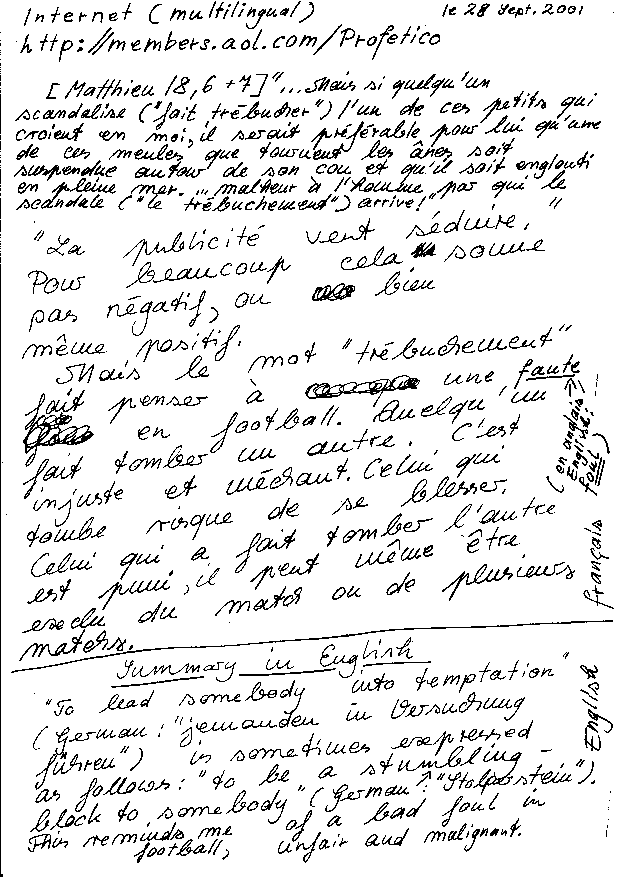 Internet (multilingual) le 28 Sept. 2001
http://members.aol.com/Profetico
[Matthieu 18,6+7] "...Mais si quelqu'un
scandalise ("fait trébucher") l'un de ces petits qui
croient en moi, il serait préférable pour lui qu'une
de ces meules que tournent les ânes soit
suspendue autour de son cou et qu'il soit englouti
en pleine mer. ... malheur à l'homme par qui le
scandale ("le trébuchement") arrive!"
"La publicité veut séduire."
Pour beaucoup cela sonne
pas négatif, ou bien
même positif.
Mais le mot "trébuchement"
fait penser à une faute
en football. Quelqu'un
fait tomber un autre. C'est
injuste et méchant. Celui qui
tombe risque de se blesser.
Celui qui a fait tomber l'autre
est puni, il peut même être
exclu du match ou de plusieurs
matchs.
(en anglais
English:
foul)
français
Summary in English
"To lead somebody into temptation"
(German: "jemanden in Versuchung
führen") is sometimes expressed
as follows: "to be a stumbling-
block to somebody" (German: "Stolperstein").
This reminds me of a bad foul in
football, unfair and malignant.
English